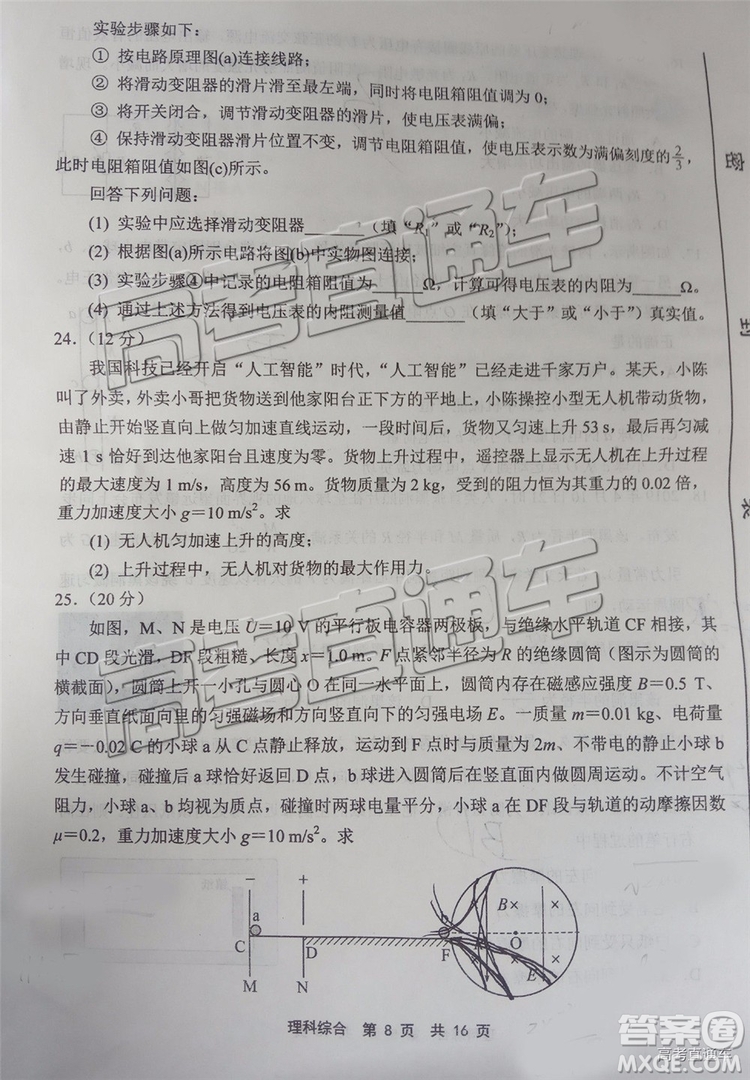 实验步骤如下：
① 按电路原理图(a)连接线路；
② 将滑动变阻器的滑片滑至最左端，同时将电阻箱阻值调为 0；
③ 将开关闭合，调节滑动变阻器的滑片，使电压表满偏；
④ 保持滑动变阻器滑片位置不变，调节电阻箱阻值，使电压表示数为满偏刻度的2/3，
此时电阻箱阻值如图(c)所示。
回答下列问题：
(1) 实验中应选择滑动变阻器______（填“R₁”或“R₂”）；
(2) 根据图(a)所示电路将图(b)中实物图连接；
(3) 实验步骤④中记录的电阻箱阻值为______Ω，计算可得电压表的内阻为______Ω。
(4) 通过上述方法得到电压表的内阻测量值______（填“大于”或“小于”）真实值。
24．（12 分）
我国科技已经开启“人工智能”时代，“人工智能”已经走进千家万户。某天，小陈
叫了外卖，外卖小哥把货物送到他家阳台正下方的平地上，小陈操控小型无人机带动货物，
由静止开始竖直向上做匀加速直线运动，一段时间后，货物又匀速上升 53 s，最后再匀减
速 1 s 恰好到达他家阳台且速度为零。货物上升过程中，遥控器上显示无人机在上升过程
的最大速度为 1 m/s，高度为 56 m。货物质量为 2 kg，受到的阻力恒为其重力的 0.02 倍，
重力加速度大小 g＝10 m/s²。求
(1) 无人机匀加速上升的高度；
(2) 上升过程中，无人机对货物的最大作用力。
25．（20 分）
如图，M、N 是电压 U＝10 V 的平行板电容器两极板，与绝缘水平轨道 CF 相接，其
中 CD 段光滑，DF 段粗糙、长度 x＝1.0 m。F 点紧邻半径为 R 的绝缘圆筒（图示为圆筒的
横截面），圆筒上开一小孔与圆心 O 在同一水平面上，圆筒内存在磁感应强度 B＝0.5 T、
方向垂直纸面向里的匀强磁场和方向竖直向下的匀强电场 E。一质量 m＝0.01 kg、电荷量
q＝－0.02 C 的小球 a 从 C 点静止释放，运动到 F 点时与质量为 2m、不带电的静止小球 b
发生碰撞，碰撞后 a 球恰好返回 D 点，b 球进入圆筒后在竖直面内做圆周运动。不计空气
阻力，小球 a、b 均视为质点，碰撞时两球电量平分，小球 a 在 DF 段与轨道的动摩擦因数
μ＝0.2，重力加速度大小 g＝10 m/s²。求
－ ＋
a
B
C D F O
E
M N
理科综合 第 8 页 共 16 页
密
封
高考直通车
高考直通车
高考直通车
答案圈
MXQE.COM